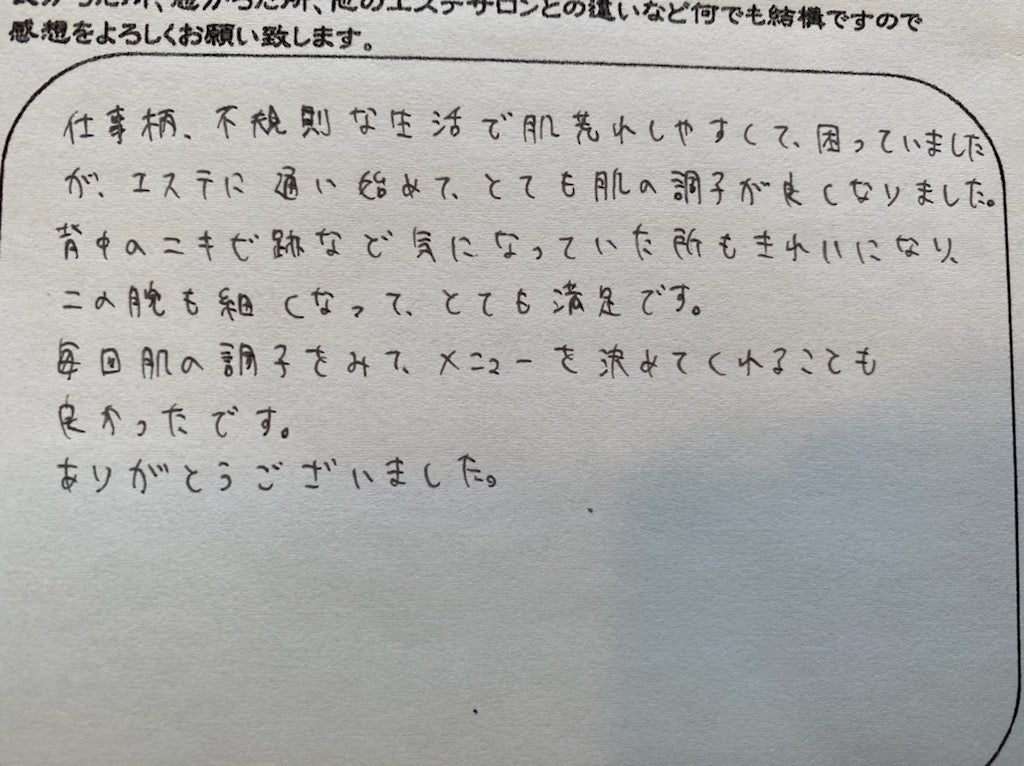 良かった所、悪かった所、他のエステサロンとの違いなど何でも結構ですので
感想をよろしくお願い致します。
仕事柄、不規則な生活で肌荒れしやすくて、困っていました
が、エステに通い始めて、とても肌の調子が良くなりました。
背中のニキビ跡など気になっていた所もきれいになり、
二の腕も細くなって、とても満足です。
毎回肌の調子をみて、メニューを決めてくれることも
良かったです。
ありがとうございました。